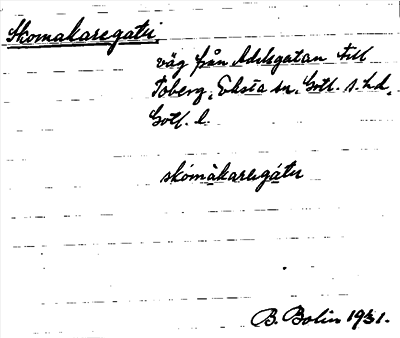 Skomakaregatu,
väg från Adelsgatan till
Toberg, Eksta sn, Gotl. s. hd,
Gotl. l.
skómàkaregátu
B. Bolin 1931.